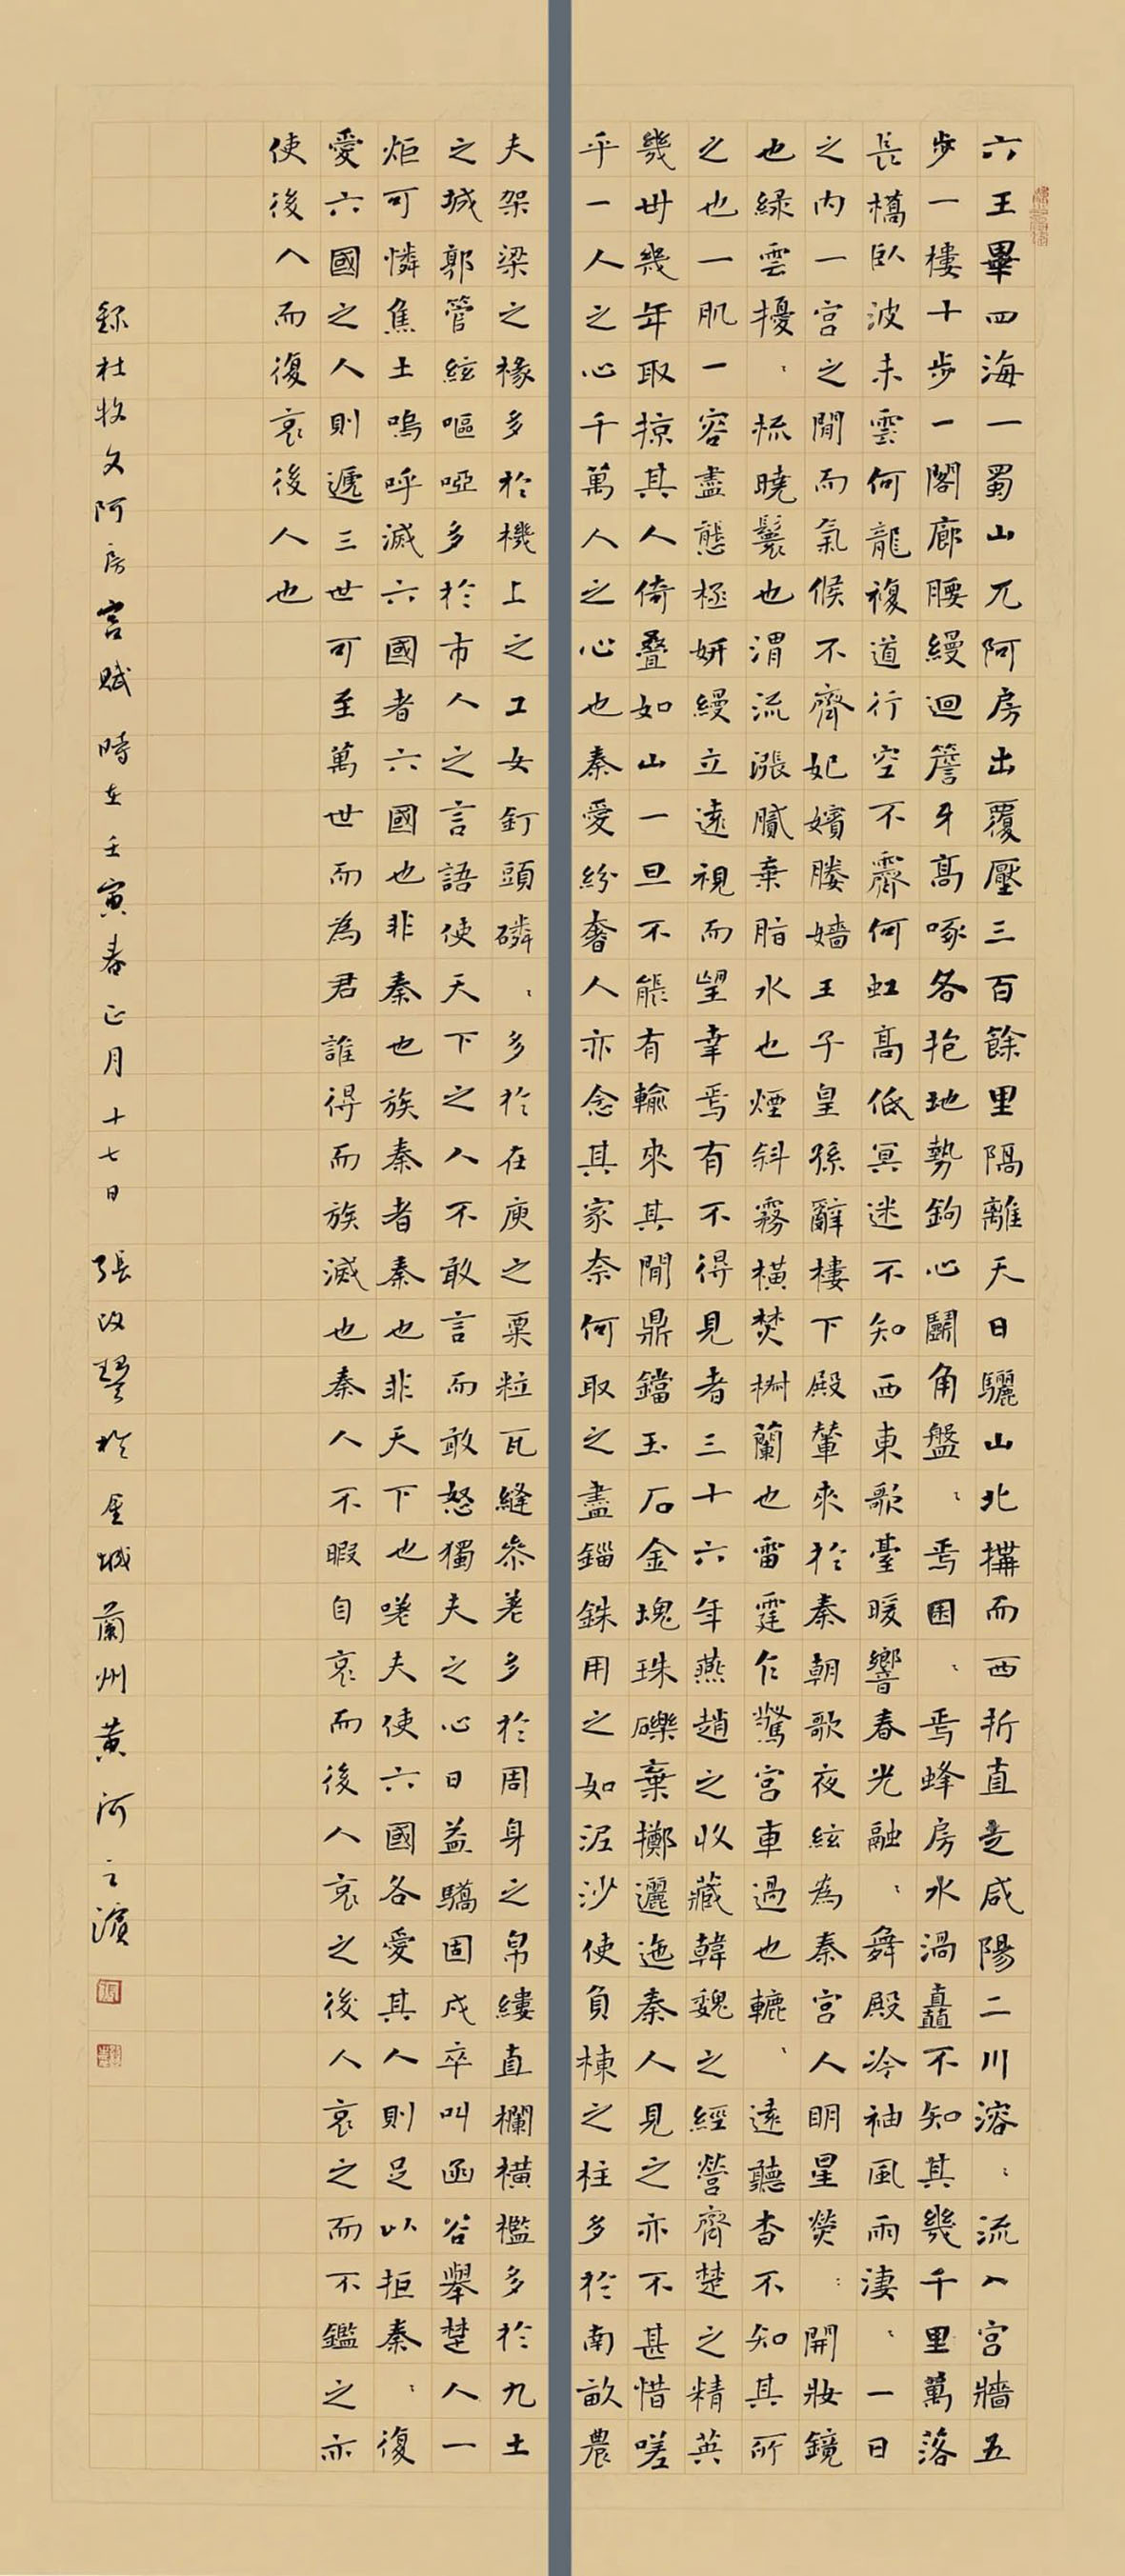 六王畢四海一蜀山兀阿房出覆壓三百餘里隔離天日驪山北搆而西折直走咸陽二川溶〻流入宮牆五
步一樓十步一閣廊腰縵迴簷牙高啄各抱地勢鉤心鬭角盤〻焉囷〻焉蜂房水渦矗不知其幾千里萬落
長橋臥波未雲何龍複道行空不霽何虹高低冥迷不知西東歌臺暖響春光融〻舞殿冷袖風雨淒〻一日
之內一宮之間而氣候不齊妃嬪媵嬙王子皇孫辭樓下殿輦來於秦朝歌夜絃為秦宮人明星熒〻開妝鏡
也綠雲擾〻梳曉鬟也渭流漲膩棄脂水也煙斜霧橫焚椒蘭也雷霆乍驚宮車過也轆〻遠聽杳不知其所
之也一肌一容盡態極妍縵立遠視而望幸焉有不得見者三十六年燕趙之收藏韓魏之經營齊楚之精英
幾世幾年取掠其人倚疊如山一旦不能有輸來其間鼎鐺玉石金塊珠礫棄擲邐迤秦人見之亦不甚惜嗟
乎一人之心千萬人之心也秦愛紛奢人亦念其家奈何取之盡錙銖用之如泥沙使負棟之柱多於南畝農
夫架梁之椽多於機上之工女釘頭磷〻多於在庾之粟粒瓦縫參差多於周身之帛縷直欄橫檻多於九土
之城郭管絃嘔啞多於市人之言語使天下之人不敢言而敢怒獨夫之心日益驕固戍卒叫函谷舉楚人一
炬可憐焦土嗚呼滅六國者六國也非秦也族秦者秦也非天下也嗟夫使六國各愛其人則足以拒秦〻復
愛六國之人則遞三世可至萬世而為君誰得而族滅也秦人不暇自哀而後人哀之後人哀之而不鑑之亦
使後人而復哀後人也
錄杜牧文阿房宮賦 時在壬寅春正月十七日 張改琴於金城蘭州黃河之濱